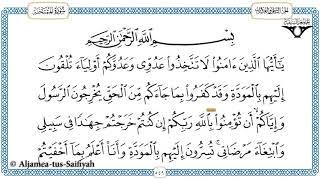 بِسْمِ اللَّهِ الرَّحْمَٰنِ الرَّحِيمِ
يَٰٓأَيُّهَا الَّذِينَ ءَامَنُوا لَا تَتَّخِذُوا عَدُوِّى وَعَدُوَّكُمْ أَوْلِيَآءَ تُلْقُونَ
إِلَيْهِم بِالْمَوَدَّةِ وَقَدْ كَفَرُوا بِمَا جَآءَكُم مِّنَ الْحَقِّ يُخْرِجُونَ الرَّسُولَ
وَإِيَّاكُمْ أَن تُؤْمِنُوا بِاللَّهِ رَبِّكُمْ إِن كُنتُمْ خَرَجْتُمْ جِهَٰدًا فِى سَبِيلِى
وَابْتِغَآءَ مَرْضَاتِى تُسِرُّونَ إِلَيْهِم بِالْمَوَدَّةِ وَأَنَا۠ أَعْلَمُ بِمَآ أَخْفَيْتُمْ
© Aljamea-tus-Saifiyah
٥٤٩